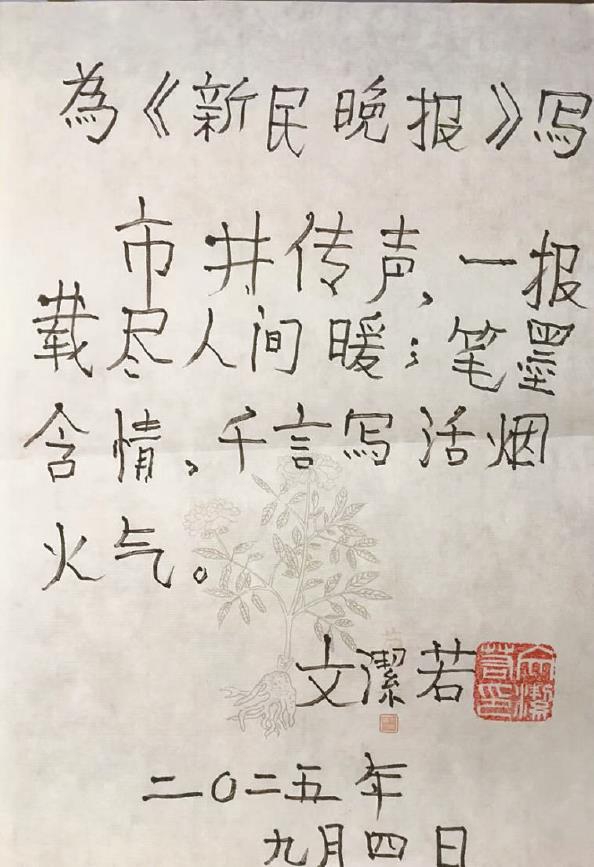 為《新民晚报》写
市井传声，一报
载尽人间暖；笔墨
含情，千言写活烟
火气。
文潔若
文潔若印
二〇二五年
九月四日